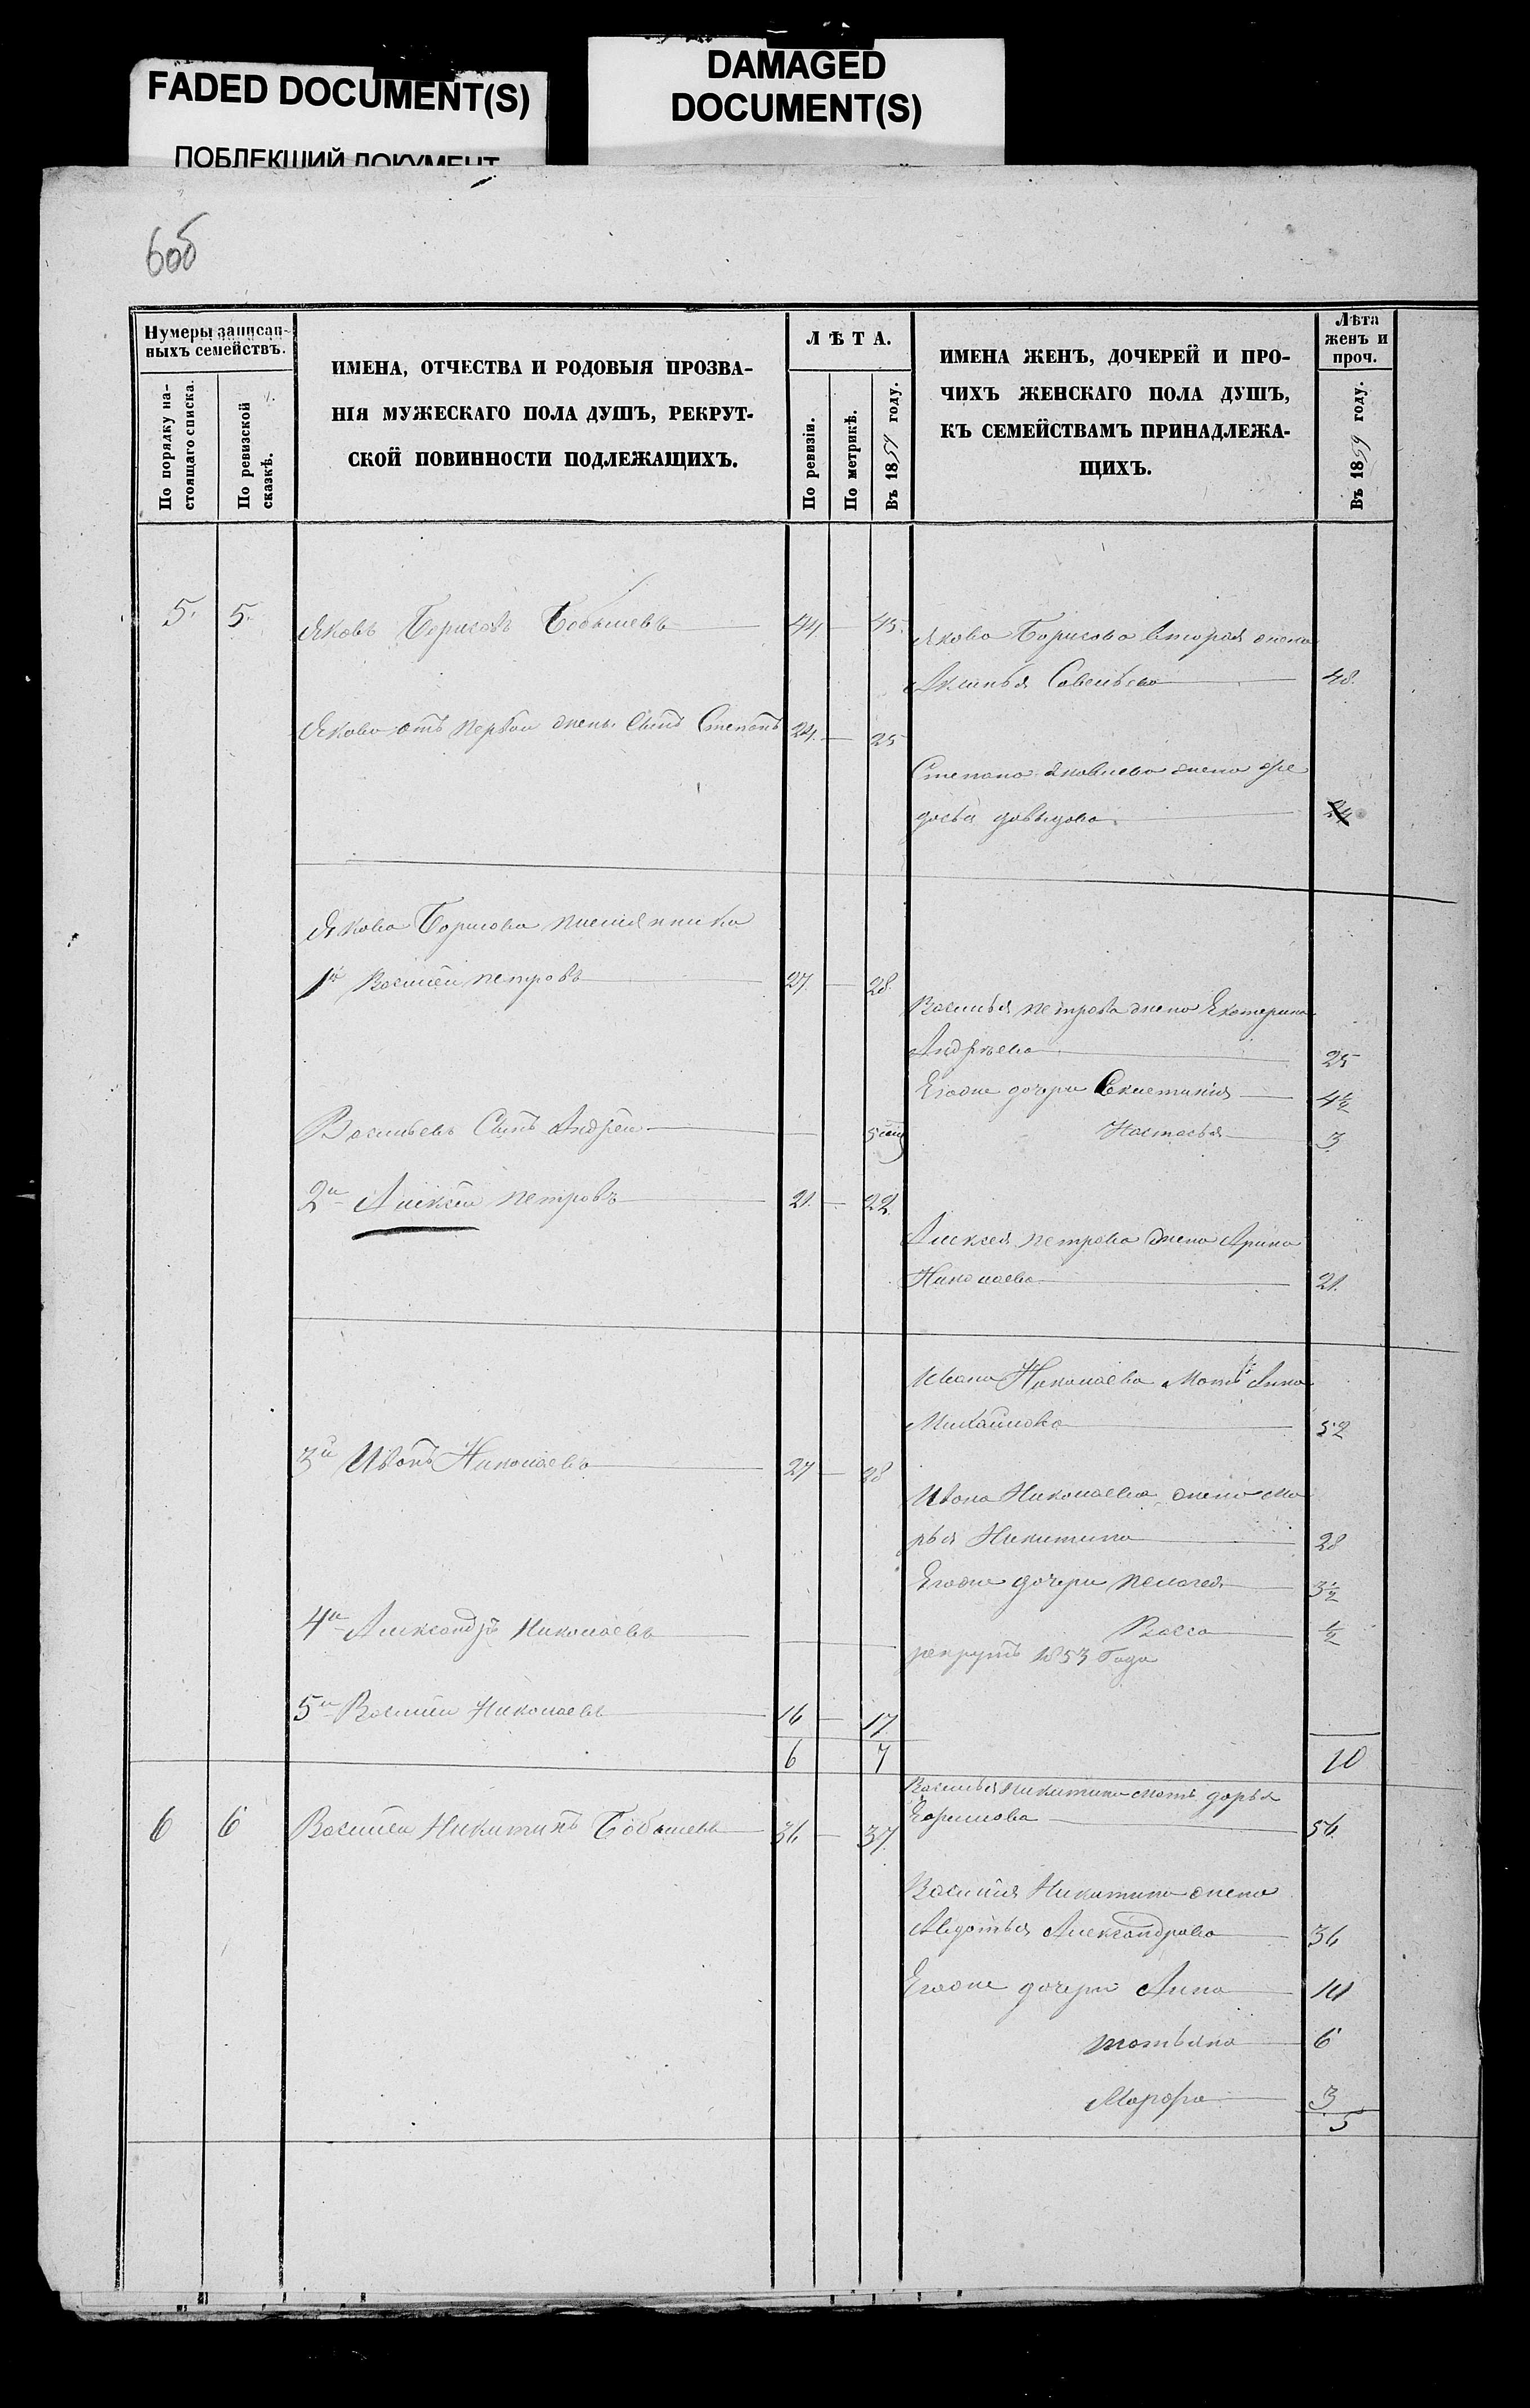 FADED DOCUMENT(S)
ПОБЛЕКШИЙ ДОКУМЕНТ
DAMAGED
DOCUMENT(S)
6об
Нумеры записан-
ныхъ семействъ.
По порядку на-
стоящаго списка.
По ревизской
сказкѣ.
ИМЕНА, ОТЧЕСТВА И РОДОВЫЯ ПРОЗВА-
НІЯ МУЖЕСКАГО ПОЛА ДУШЪ, РЕКРУТ-
СКОЙ ПОВИННОСТИ ПОДЛЕЖАЩИХЪ.
ЛѢТА.
По ревизіи.
По метрикѣ.
Въ 1859 году.
ИМЕНА ЖЕНЪ, ДОЧЕРЕЙ И ПРО-
ЧИХЪ ЖЕНСКАГО ПОЛА ДУШЪ,
КЪ СЕМЕЙСТВАМЪ ПРИНАДЛЕЖА-
ЩИХЪ.
Лѣта
женъ и
проч.
Въ 1859 году.
5. 5. Яковъ Борисовъ Бобышевъ 44 — 45.
Якова Борисова вторая жена
Акинья Савельева 48.
Якова отъ первой жены сынъ Степанъ 24. — 25
Степана Яковлева жена Фе
досья Давыдова 24
Якова Борисова племянники
1й Василей Петровъ 27. — 28.
Василья Петрова жена Екатерина
Андреева 25
Егоже дочери 4½
Васильевъ сынъ Андрей 5
Настасья 3
2й Алексей Петровъ 21. — 22.
Алексея Петрова жена Арина
Николаева 21.
Ивана Николаева мать Анна
Михайлова 52
3й Иванъ Николаевъ 27 — 28
Ивана Николаева жена Ма
рья Никитина 28
Егоже дочери Пелагея 3½
4й Александръ Николаевъ
Васса ½
рекрутъ 1853 года
5й Василей Николаевъ 16 — 17
6 7 10
6 6 Василей Никитинъ Бобышевъ 36 — 37.
Василья Никитина мать Дарья
Ефимова 56.
Василия Никитина жена
Авдотья Александрова 36
Егоже дочери Анна 10
Татьяна 6
Марфа 3
5